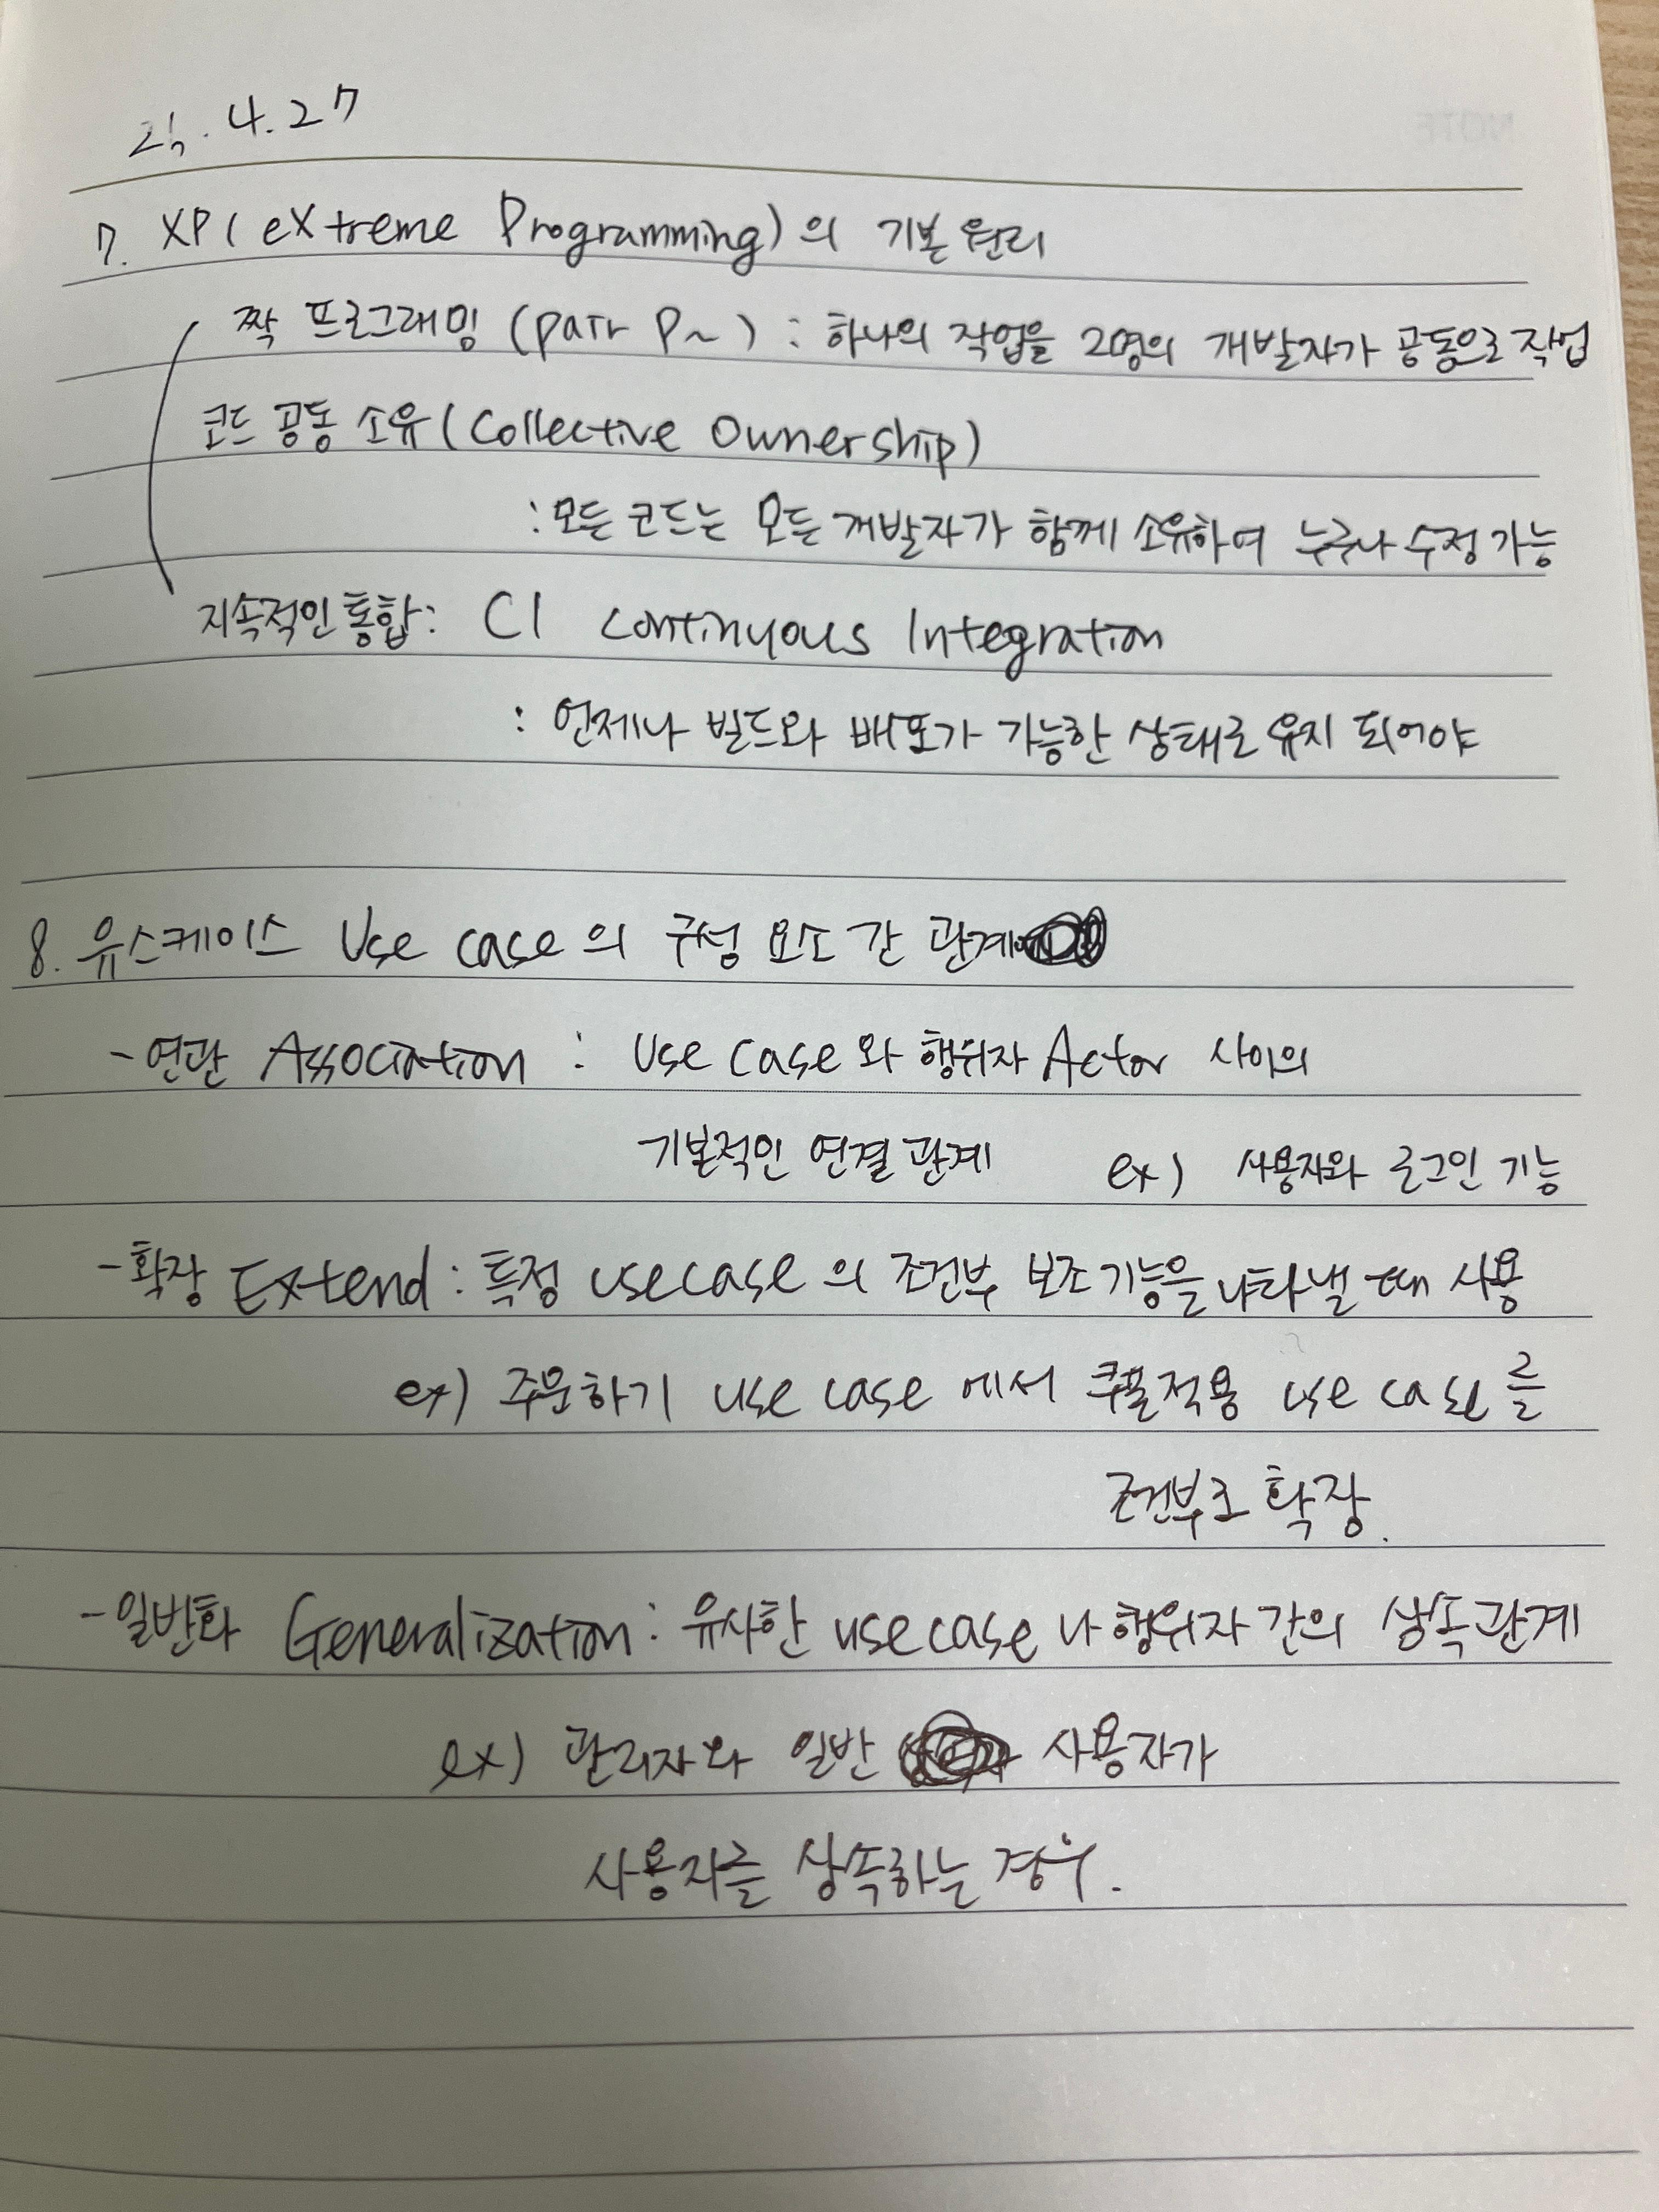 4.27
7. XP(eXtreme Programming)의 기본 원리
짝 프로그래밍 (pair P~) : 하나의 작업을 2명의 개발자가 공동으로 작업
코드 공동 소유(Collective Ownership)
: 모든 코드는 모든 개발자가 함께 소유하여 누구나 수정 가능
지속적인 통합: CI Continuous Integration
: 언제나 빌드와 배포가 가능한 상태로 유지 되어야
8. 유스케이스 Use case의 구성 요소 간 관계
- 연관 Association : Use case와 행위자 Actor 사이의
기본적인 연결 관계 ex) 사용자와 로그인 기능
- 확장 Extend : 특정 usecase의 조건부 보조 기능을 나타낼 때 사용
ex) 주문하기 use case에서 쿠폰적용 use case를
조건부로 확장.
- 일반화 Generalization : 유사한 usecase나 행위자 간의 상속관계
ex) 관리자와 일반 사용자가
사용자를 상속하는 경우.